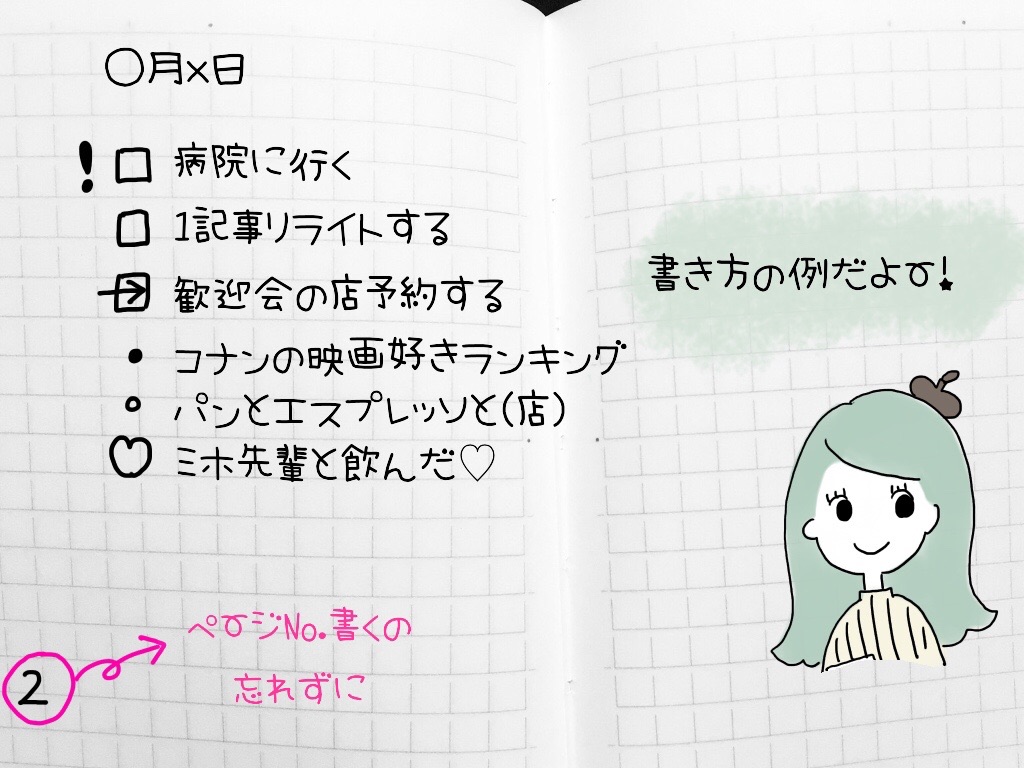 〇月×日
! □ 病院に行く
□ 1記事リライトする
→ 歓迎会の店予約する
• コナンの映画好きランキング
○ パンとエスプレッソと(店)
♡ ミホ先輩と飲んだ♡
書き方の例だよー!
ページNo.書くの
忘れずに
2